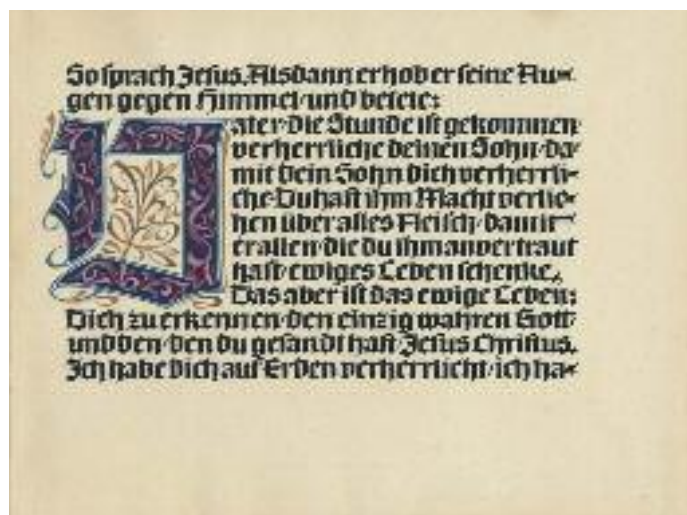 So sprach Jesus. Alsdann erhob er seine Au-
gen gegen Himmel und betete:
Vater die Stunde ist gekommen
verherrliche deinen Sohn da-
mit dein Sohn dich verherrli-
che. Du hast ihm Macht verlie-
hen über alles Fleisch, damit
er allen die du ihm anvertraut
hast ewiges Leben schenke.
Das aber ist das ewige Leben:
Dich zu erkennen den einzig wahren Gott
und den den du gesandt hast Jesus Christus.
Ich habe dich auf Erden verherrlicht, ich ha-